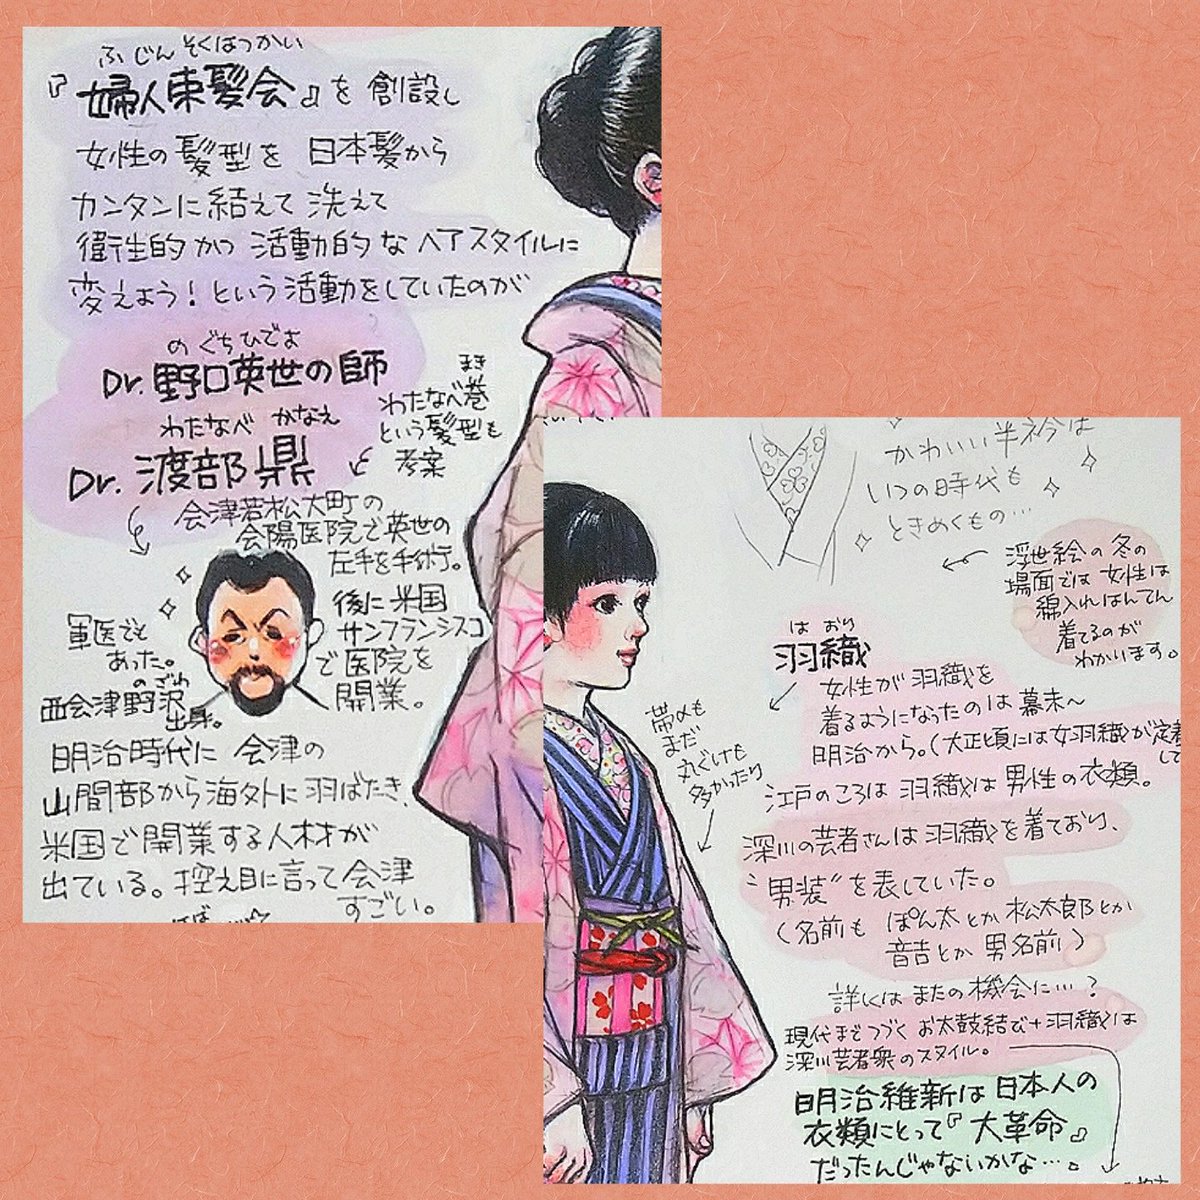 ふじん そくはつかい
『婦人束髪会』を 創設し
女性の髪型を 日本髪から
カンタンに結えて 洗えて
衛生的かつ 活動的な ヘアスタイルに
変えよう!という活動をしていたのが
のぐちひでよ
Dr.野口英世の師
わたなべ かなえ
Dr.渡部鼎
まき
わたなべ巻
という髪型も
考案
会津若松大町の
会陽医院で英世の
左手を手術。
軍医でも
あった。
のざわ
西会津野沢
出身。
後に米国
サンフランシスコ
で医院を
開業。
明治時代に 会津の
山間部から海外に羽ばたき、
米国で開業する人材が
出ている。控え目に言って会津
すごい。
かわいい半衿は
いつの時代も
ときめくもの…
浮世絵の冬の
場面では 女性は
綿入れはんてん
着てるのが
わかります。
はおり
羽織
女性が 羽織を
着るようになったのは 幕末〜
明治から。(大正頃には女羽織が定着
して
江戸のころは 羽織は男性の衣類。
帯〆も
まだ
丸ぐけも
多かったり
深川の芸者さんは 羽織を着ており、
"男装"を表していた。
(名前も ぽん太とか 松太郎とか
音吉とか 男名前)
詳しくは またの機会に…?
現代までつづく お太鼓結び+羽織は
深川芸者衆のスタイル。
明治維新は日本人の
衣類にとって『大革命』
だったんじゃないかな…。